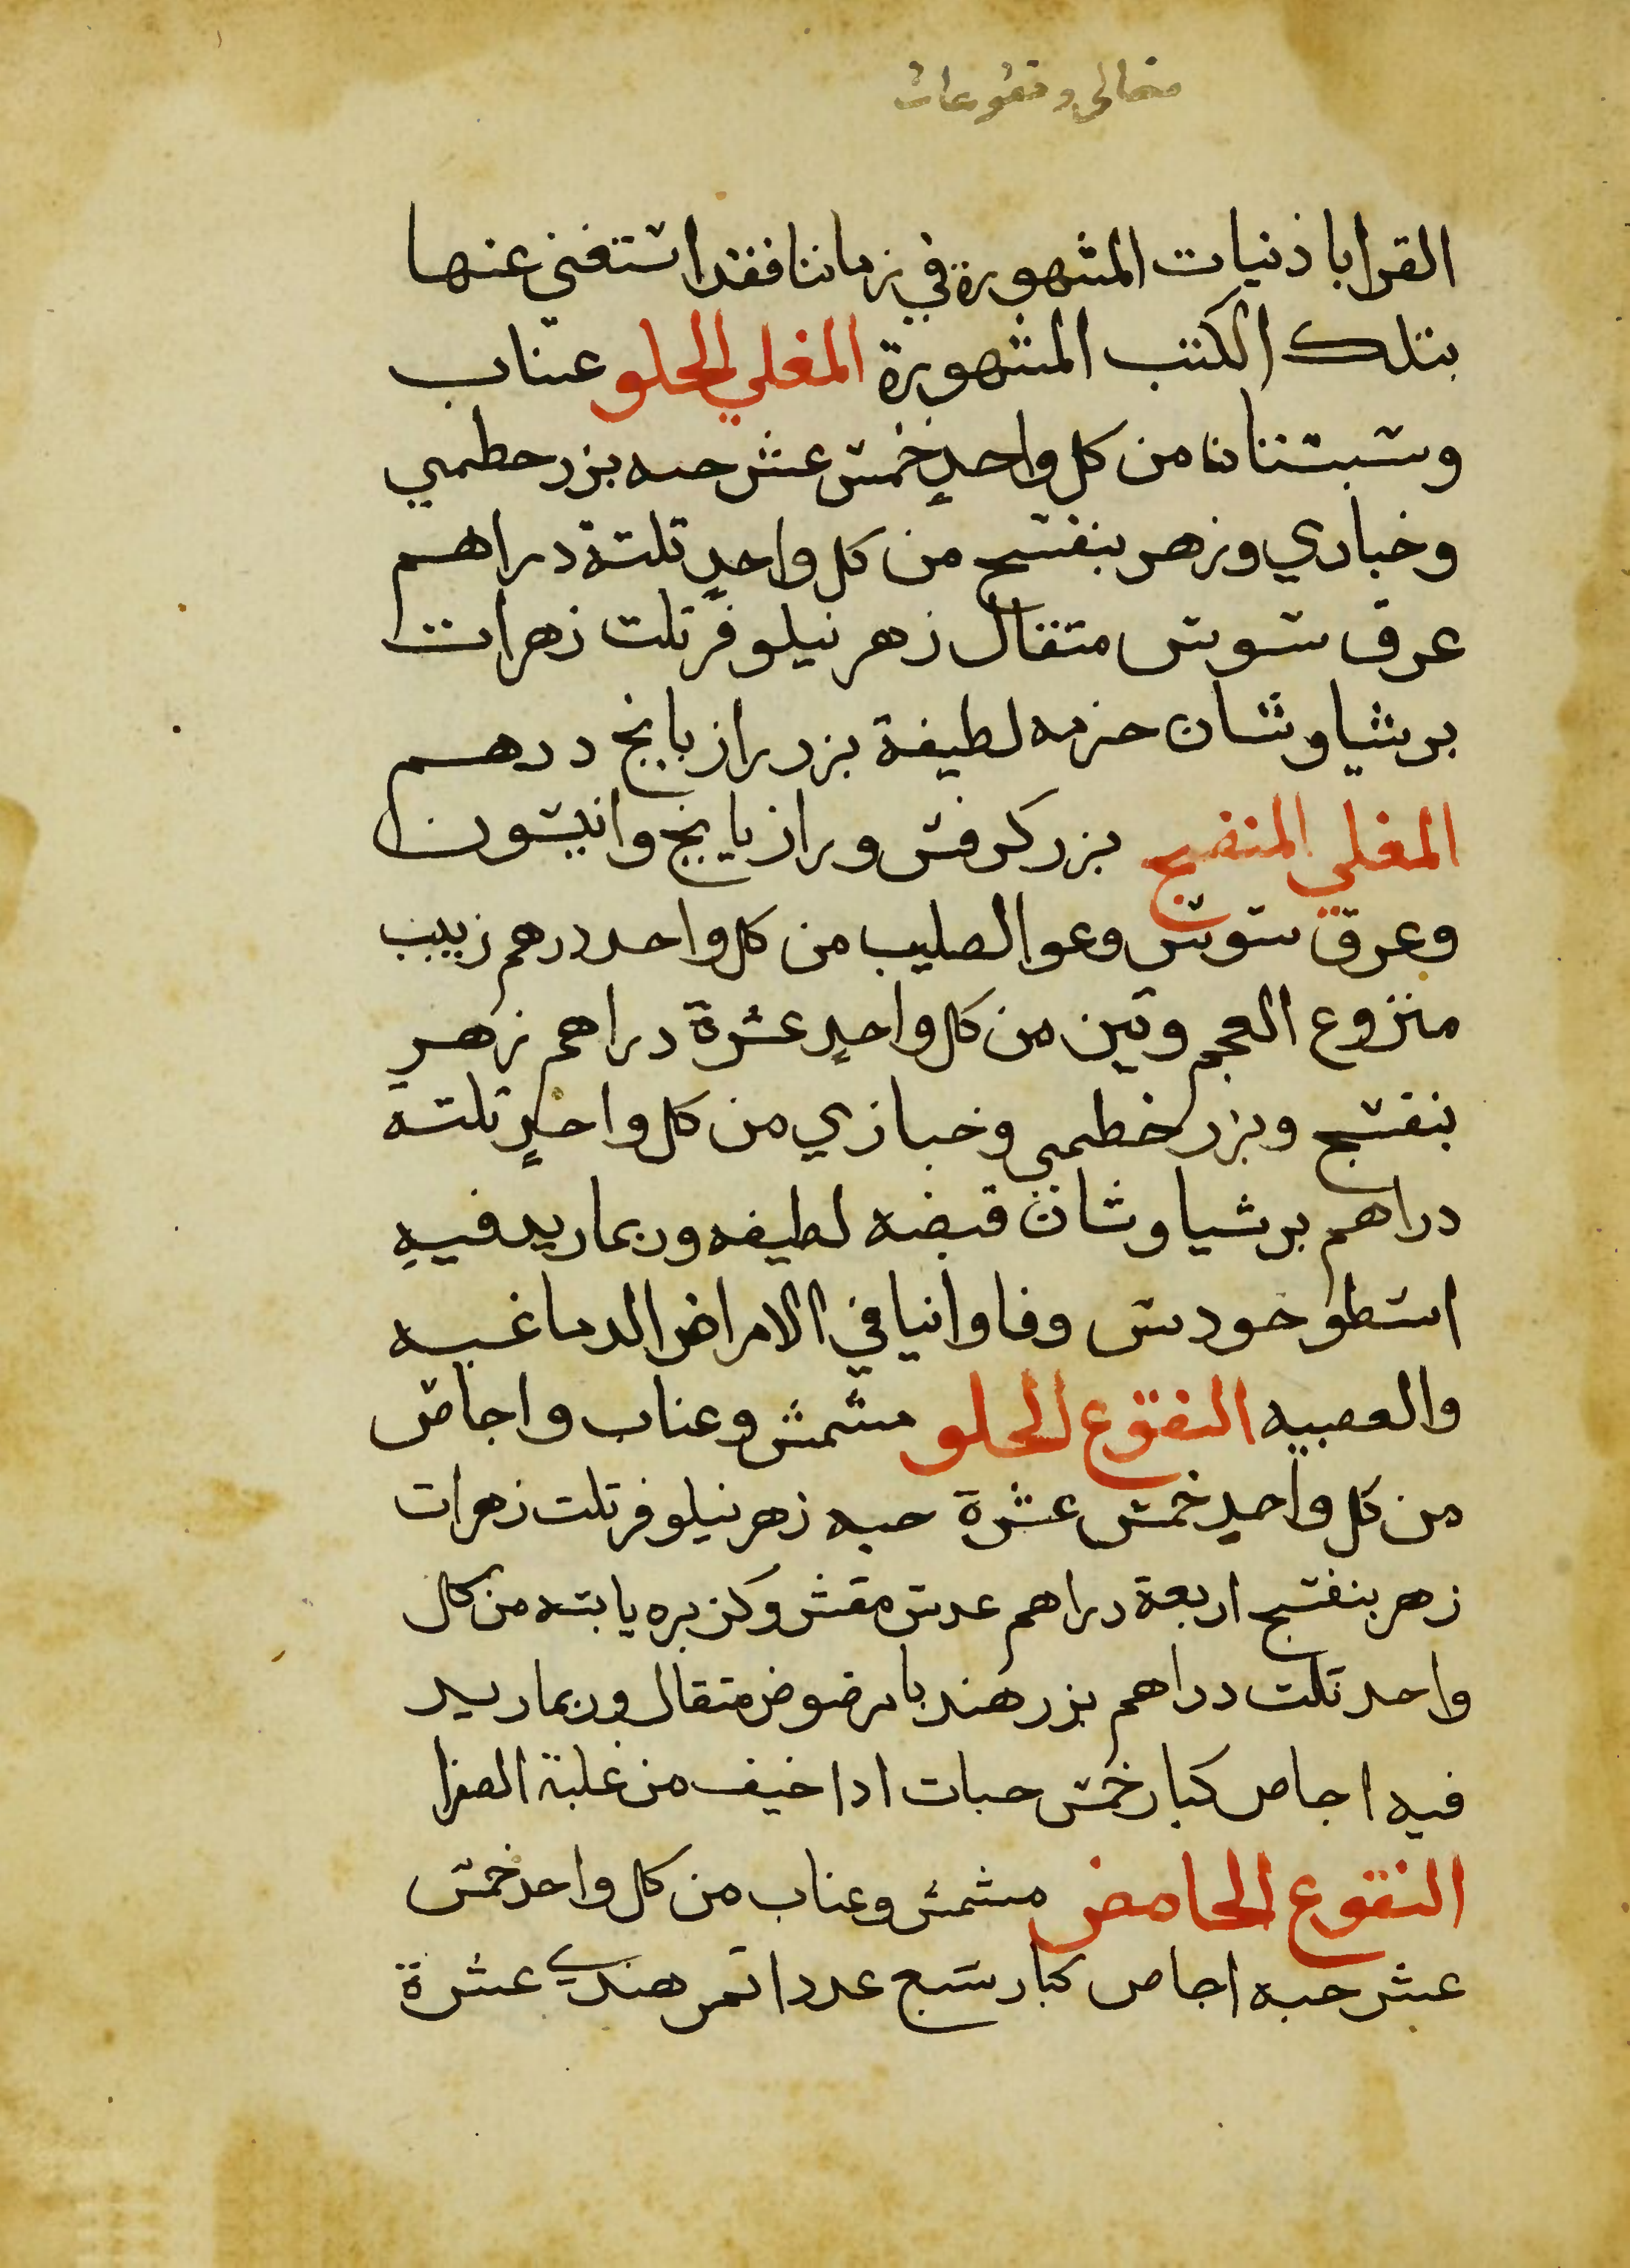 مغالي ونقوعات
القراباذنيات المشهورة في زماننا فقد استغني عنها
بتلك الكتب المشهورة المغلي الحلو عناب
وسبستانا من كل واحدٍ خمس عشر حبه بزر خطمي
وخبازي وزهر بنفسج من كل واحدٍ تلتة دراهم
عرق سوس متقال زهر نيلوفر تلت زهرات
برشياوشان حزمه لطيفة بزر رازيانج درهم
المغلي المنضج بزر كرفس ورازيانج وانيسون
وعرق سوس وعو الصليب من كل واحد درهم زبيب
منزوع العجم وتين من كل واحدٍ عشرة دراهم زهر
بنفسج وبزر خطمي وخبازي من كل واحدٍ تلتة
دراهم برشياوشان قبضه لطيفه وربما ريد فيه
اسطوخودس وفاوانيا في الامراض الدماغيه
والعصبيه النقوع الحلو مشمش وعناب واجاص
من كل واحدٍ خمس عشرة حبه زهر نيلوفر تلت زهرات
زهر بنفسج اربعة دراهم عدس مقشر وكزبره يابسه من كل
واحد تلت دراهم بزر هندبا مرضوض متقال وربما ريد
فيه اجاص كبار خمس حبات ادا خيف من غلبة الصفرا
النقوع الحامض مشمش وعناب من كل واحد خمس
عشر حبه اجاص كبار سبع عددا تمر هندي عشرة